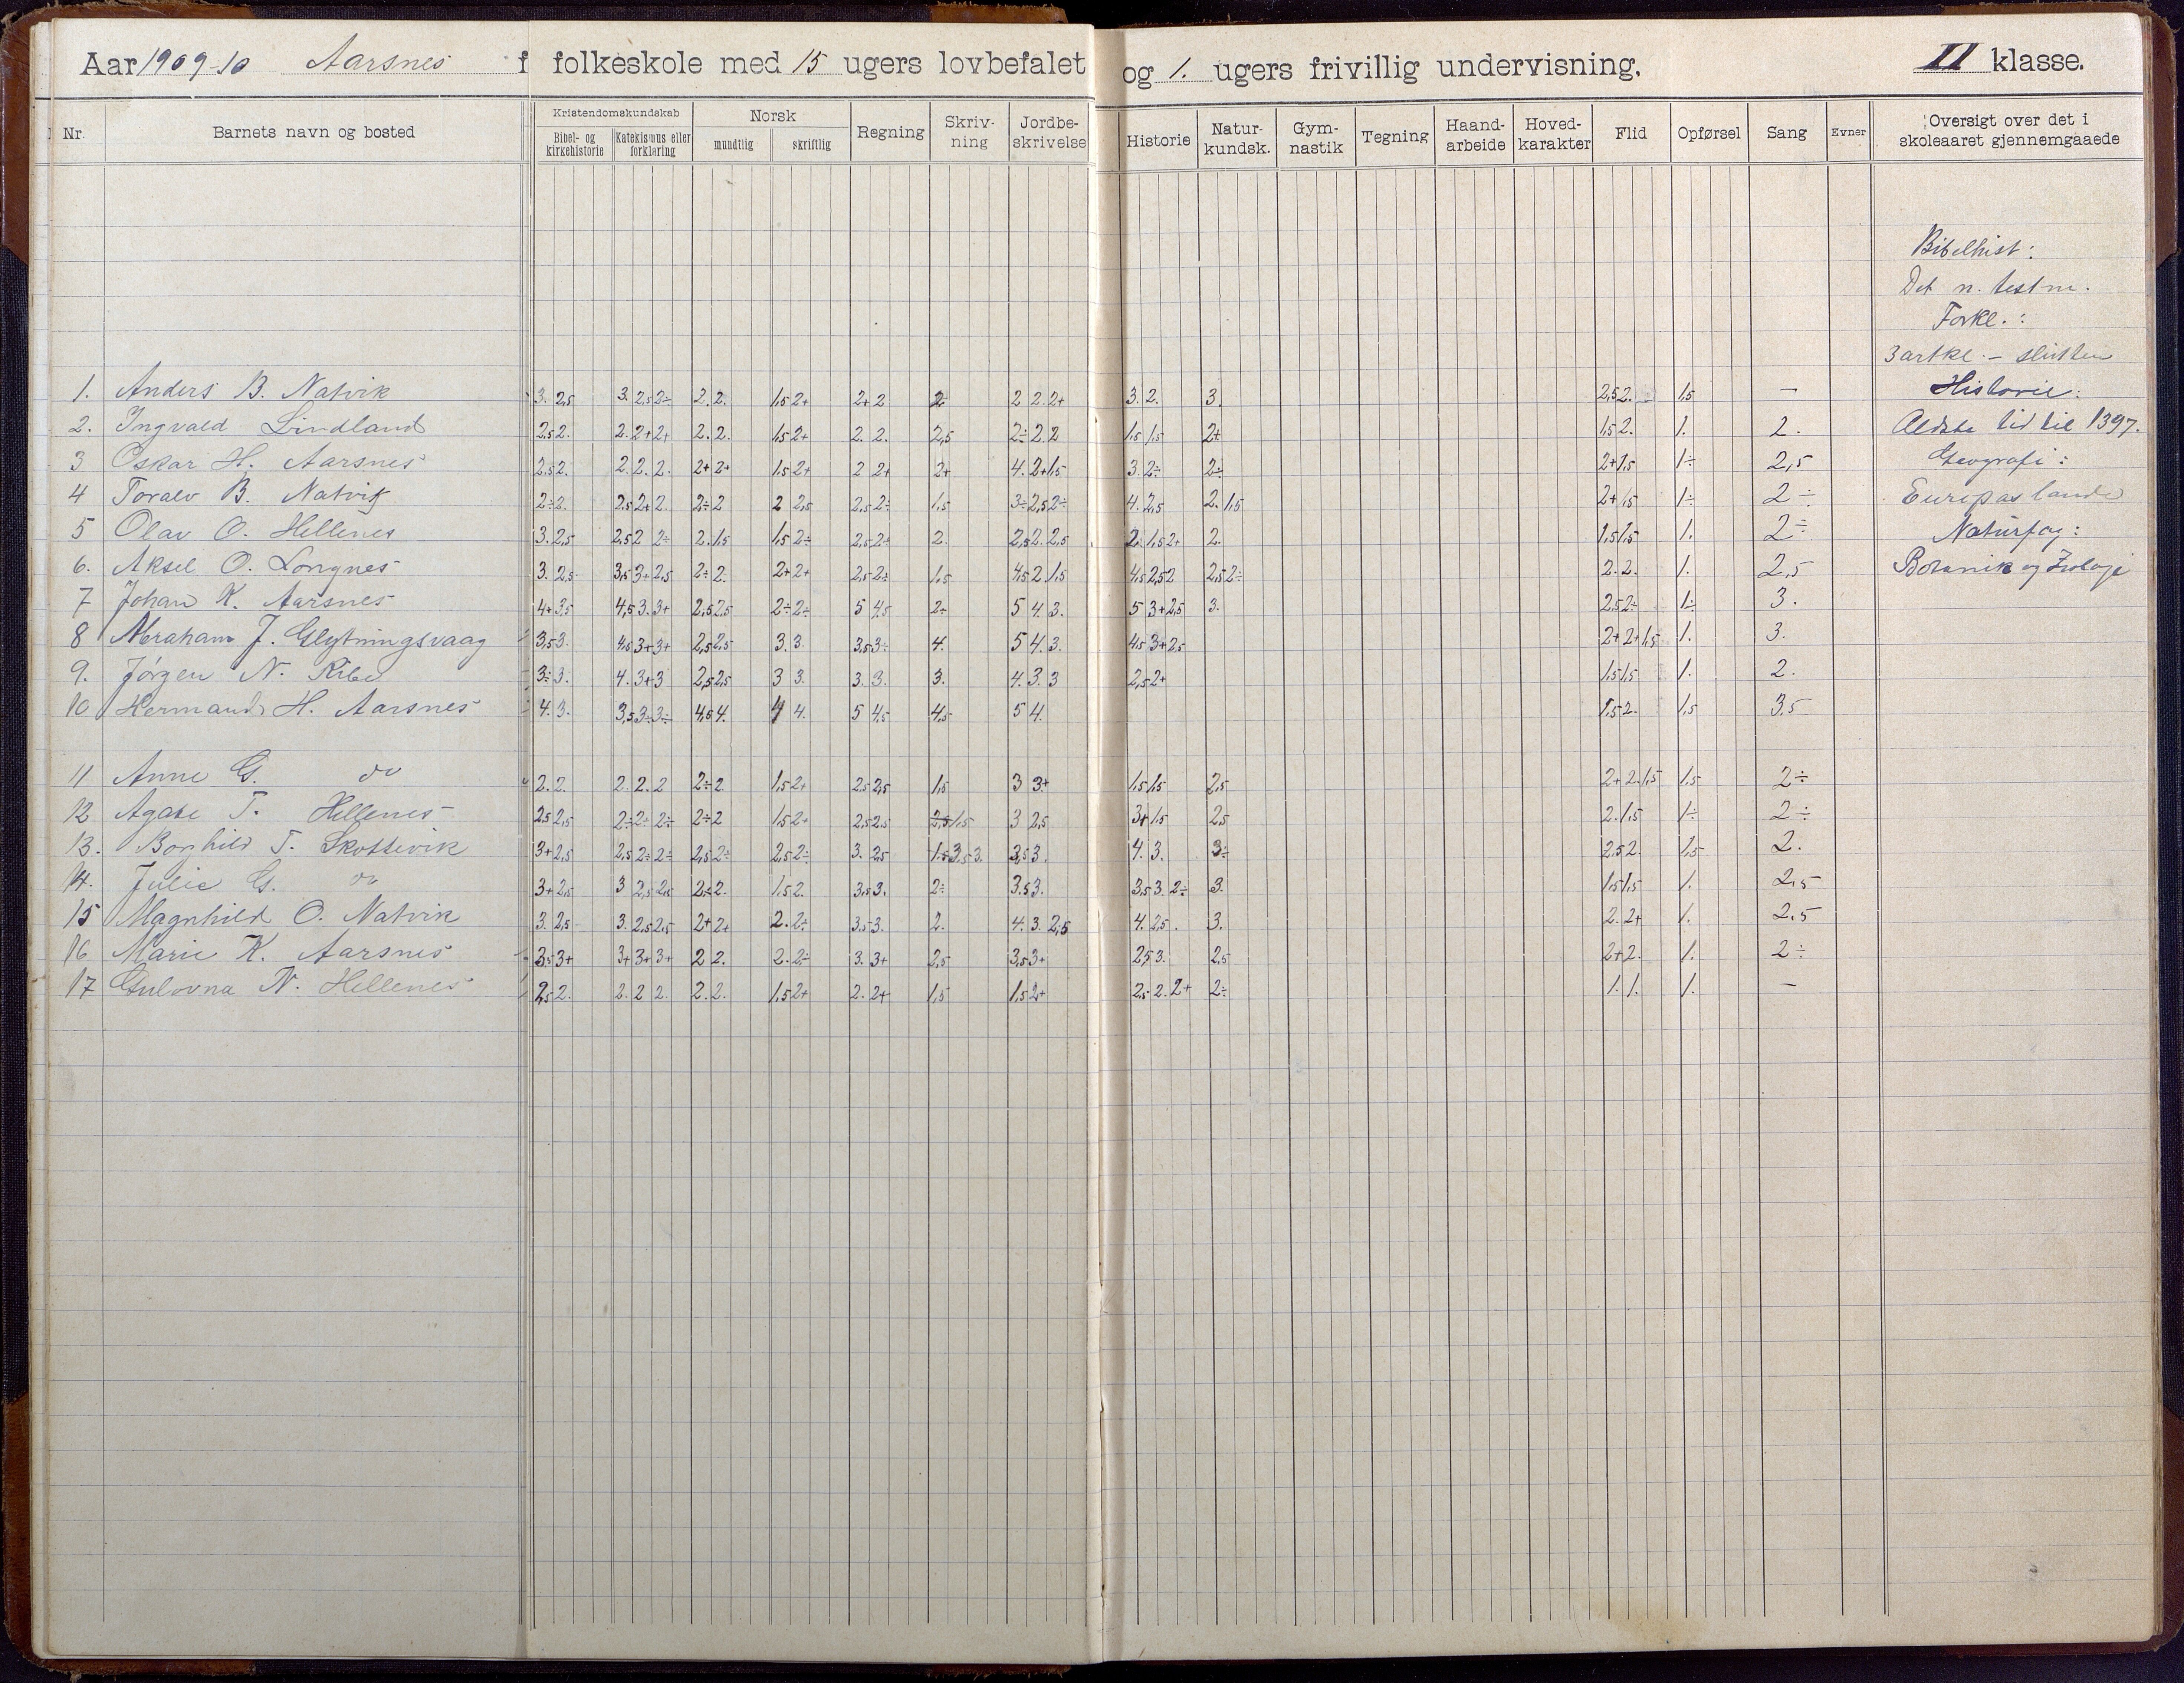 Aar 1909-10 Aarsnes f folkeskole med 15 ugers lovbefalet og 1. ugers frivillig undervisning. II klasse.
Nr. Barnets navn og bosted Kristendomskundskab Norsk Regning Skriv-ning Jordbe-skrivelse Historie Natur-kundsk. Gym-nastik Tegning Haand-arbeide Hoved-karakter Flid Opførsel Sang Evner Oversigt over det i skoleaaret gjennemgaaede
Bibel- og kirkehistorie Katekismus eller forklaring mundtlig skriftlig
Bibelhist:
Det n. testm.
Forkl.:
3 artkl. – slutten
1. Anders B. Natvik 3. 2,5 3. 2,5 2÷ 2. 2. 1,5 2+ 2+ 2 2 2 2. 2+ 3. 2. 3. 2,5 2. 1,5 — Historie:
2. Ingvald Lindland 2,5 2. 2. 2+ 2+ 2. 2. 1,5 2+ 2. 2. 2,5 2÷ 2. 2 1,5 1,5 2+ 1,5 2. 1. 2. Ældste tid til 1397.
3 Oskar H. Aarsnes 2,5 2. 2. 2. 2. 2+ 2+ 1,5 2+ 2 2+ 2+ 4. 2+ 1,5 3 2÷ 2÷ 2+ 1,5 1÷ 2,5 Geografi:
4 Toralv B. Natvik 2÷ 2. 2,5 2+ 2. 2÷ 2 2 2,5 2,5 2÷ 1,5 3÷ 2,5 2÷ 4. 2,5 2. 1,5 2+ 1,5 1÷ 2÷ Europas lande
5 Olav O. Hellenes 3. 2,5 2,5 2 2÷ 2. 1,5 1,5 2÷ 2,5 2÷ 2. 2,5 2. 2,5 2. 1,5 2+ 2. 1,5 1,5 1. 2÷ Naturfag:
6. Aksel O. Longnes 3. 2,5 3,5 3+ 2,5 2÷ 2. 2+ 2+ 2,5 2÷ 1,5 4,5 2 1,5 4,5 2,5 2 2,5 2÷ 2. 2. 1. 2,5 Botanik og Zoologi
7 Johan K. Aarsnes 4+ 3,5 4,5 3. 3+ 2,5 2,5 2÷ 2÷ 5 4,5 2÷ 5 4 3. 5 3+ 2,5 3. 2,5 2÷ 1÷ 3.
8 Abraham J. Glytningsvaag 3,5 3. 4,5 3+ 3+ 2,5 2,5 3. 3. 3,5 3÷ 4. 5 4. 3. 4,5 3+ 2,5 2+ 2+ 1,5 1. 3.
9. Jørgen N. Ribe 3÷ 3. 4. 3+ 3 2,5 2,5 3 3. 3. 3. 3. 4. 3. 3 2,5 2+ 1,5 1,5 1. 2.
10 Hermand H. Aarsnes 4. 3. 3,5 3÷ 3÷ 4,5 4. 4 4. 5 4,5 4,5 5 4. 1,5 2. 1,5 3,5
11 Anne G. do 2. 2. 2. 2. 2 2÷ 2. 1,5 2+ 2,5 2,5 1,5 3 3+ 1,5 1,5 2,5 2+ 2. 1,5 1,5 2÷
12 Agate T. Hellenes 2,5 2,5 2÷ 2÷ 2÷ 2÷ 2 1,5 2+ 2,5 2,5 2,5 1,5 3 2,5 3+ 1,5 2,5 2. 1,5 1÷ 2÷
13. Borghild T. Skottevik 3+ 2,5 2,5 2÷ 2÷ 2,5 2÷ 2,5 2÷ 3. 2,5 1,5 3,5 3. 3,5 3. 4. 3. 3÷ 2,5 2. 1,5 2.
14. Julie G. do 3+ 2,5 3 2,5 2,5 2,5 2. 1,5 2. 3,5 3. 2÷ 3,5 3. 3,5 3. 2÷ 3. 1,5 1,5 1. 2,5
15 Magnhild O. Natvik 3. 2,5 3. 2,5 2,5 2+ 2+ 2. 2÷ 3,5 3. 2. 4. 3. 2,5 4. 2,5. 3. 2. 2+ 1. 2.5
16 Marie K. Aarsnes 3,5 3+ 3+ 3+ 3+ 2 2. 2. 2÷ 3. 3+ 2,5 3,5 3+ 2,5 3. 2,5 2+ 2. 1. 2÷
17 Gulovna N. Hellenes 2,5 2. 2. 2 2. 2. 2. 1,5 2+ 2. 2+ 1,5 1,5 2+ 2,5 2. 2+ 2÷ 1. 1. 1. —